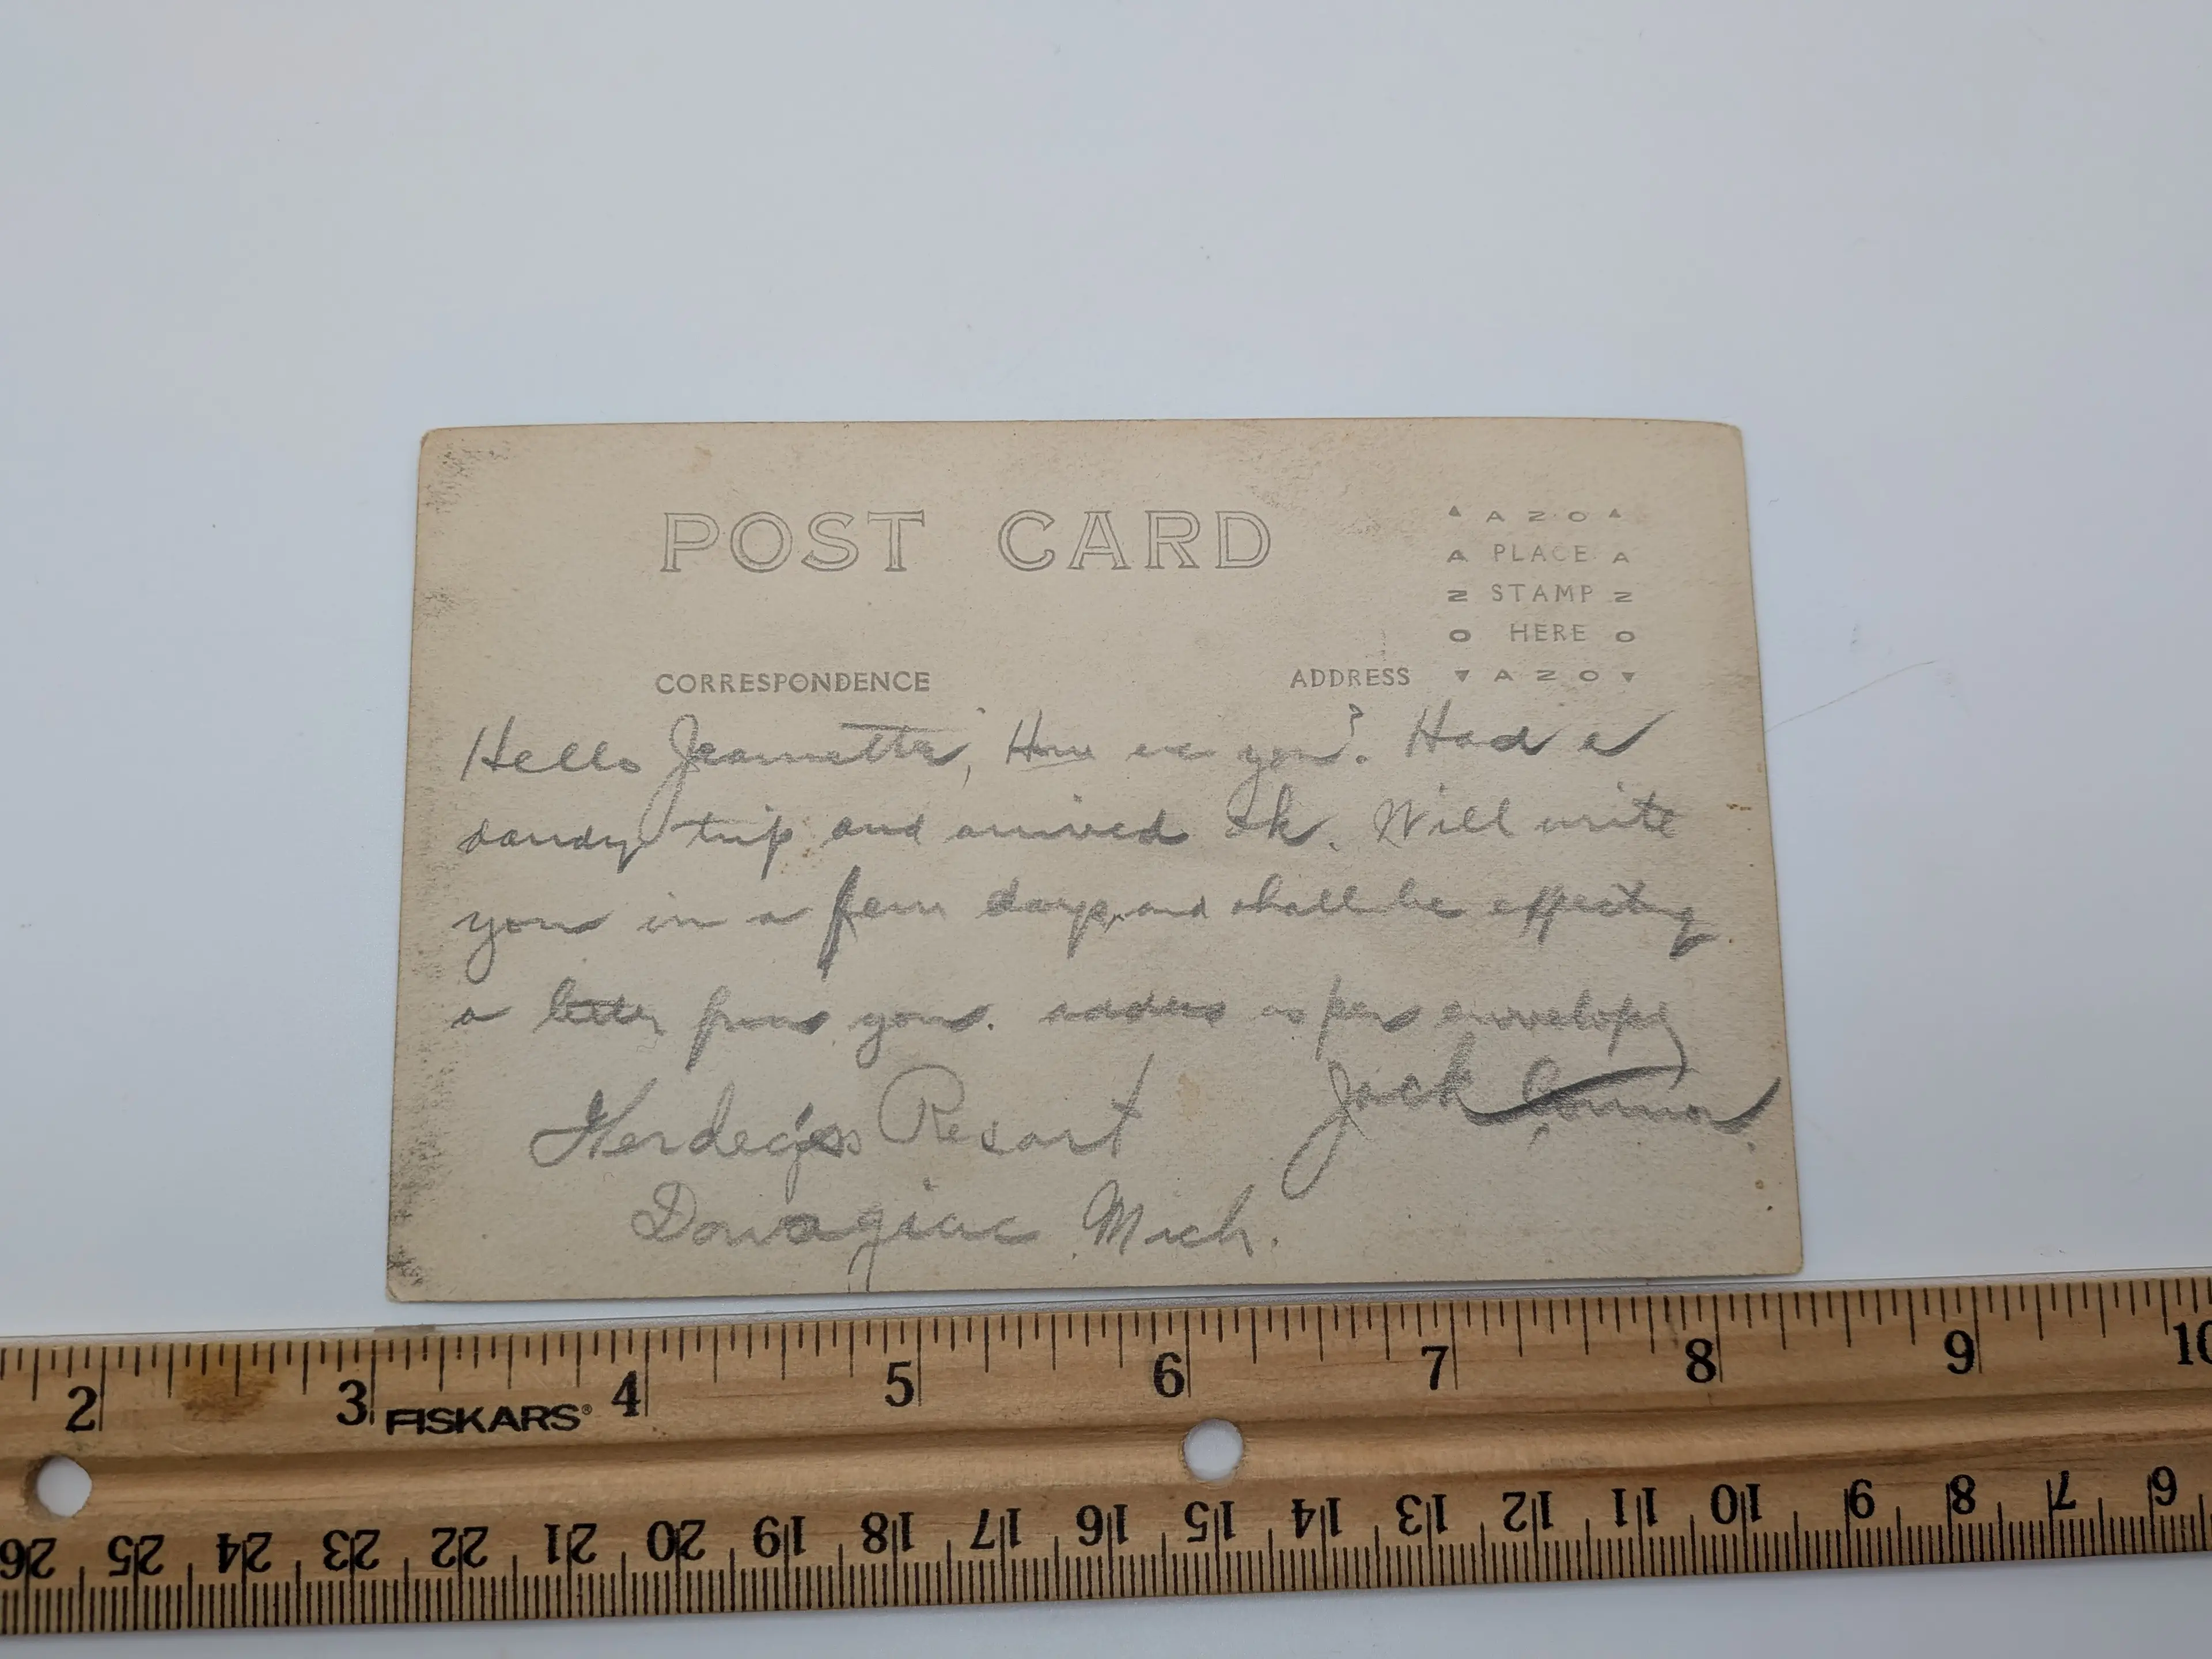 POST CARD
▲ A Z O ▲
A PLACE A
Z STAMP Z
O HERE O
▼ A Z O ▼
CORRESPONDENCE
ADDRESS
Hello Jeannette, How are you? Had a
dandy trip and arrived Ok. Will write
you in a few days, and shall be
a letter from you. address as per envelope
Jack Connor.
Resort
Dowagiac Mich.
2 3 4 5 6 7 8 9 10
FISKARS®
26 25 24 23 22 21 20 19 18 17 16 15 14 13 12 11 10 9 8 7 6